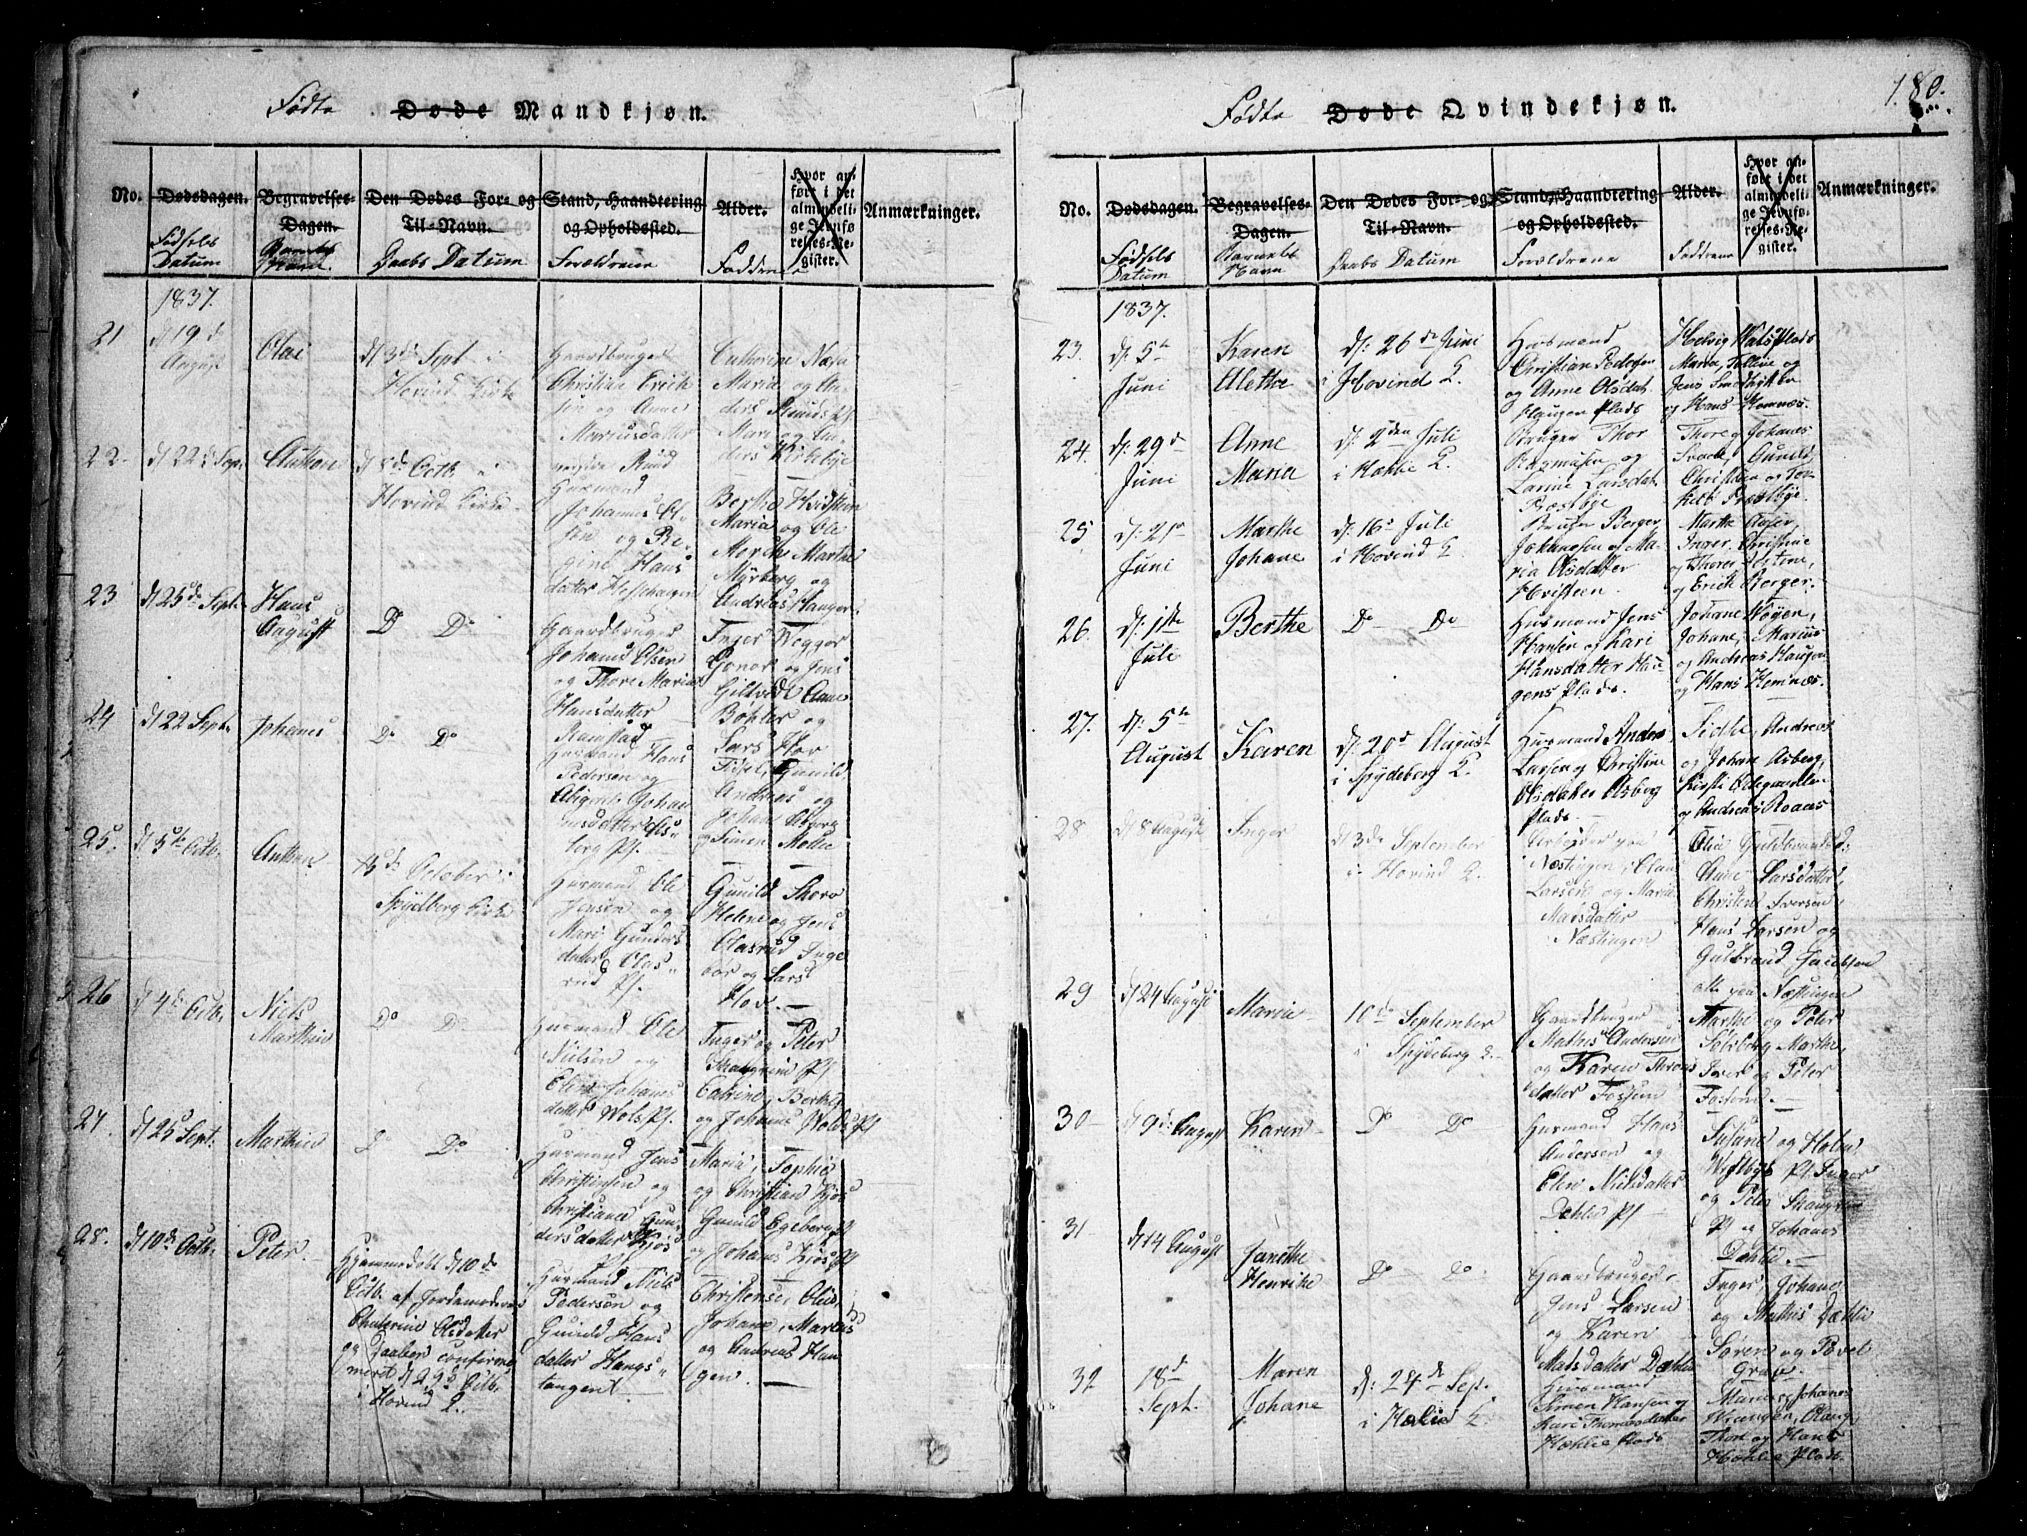 Fødte Døde Mandkjøn.
No.
Dødsdagen.
Fødsels
Datum
Begravelses-
Dagen.
Barnets
Navn
Den Dødes For- og
Til-Navn.
Daabs Datum
Stand, Haandtering
og Opholdssted.
Forældrene
Alder.
Faddrene
Hvor an-
ført i det
almindeli-
ge Jevnfø-
relses-Re-
gister.
Anmærkninger.
1837.
21
d 19d
August
Olai
d 3d Sept i
Hovind Kirke
Gaardbruger
Christian Erick-
sen og Anne
Mariusdatter
Ruud
Cathrine Næs
Maria og An-
ders Ruud
22
d 22d Sept.
Anthon
d 8d Octb. i
Hovind Kirke
Huusmand
Johannes Ol-
sen og Re-
gine Hans
datter
Berthe Hvidsteen
Maria og Ole
Marthe
Myrberg og
Andreas Hauger
23
d 25d Sept.
Hans
August
Do Do
Gaardbruger
Johannes Olsen
og Thore Maria
Hansdatter
Ramstad
Inger Weggar
Gonor og Jens
Giltvedt Anne
Bøhler og
Lars
24
d 22 Sept.
Johanes
Do Do
Huusmand Hans
Pedersen og
Johan
nesdatter As-
berg Pl.
Gunild
Andreas og
Johan Asberg
og Simen Mølle
25.
d 5te Octb.
Anthon
d 8d October i
Spydeberg Kirke
Huusmand Ole
Jensen og
Mari Gunders
datter Olas-
rud Pl.
Gunild Skoro
Helene og Jens
Olasrud Inge
bor og Lars
Hov.
26
d 4d Octb.
Niels
Marthin
Do Do
Huusmand Ole
Nielsen og
Eline Johanes
datter Wols Pl.
Inger og Peter
Skangrind Pl.
Catrine, Berthe
og Johanes Wolds Pl
27
d 25 Sept.
Marthin
Do Do
Huusmand Jens
Christensen og
Christiane Gun
dersdatter Kjos
Pl.
Maria, Sophie
og Christian Kjos
Gunild Egeberg Pl
og Johanes Kjos Pl
28.
d 10d Octb.
Peter
Hjemmedøbt d 10d
Octb. af Jordemoderen
Chaterine Olsdatter
og Daaben confirme
meret d 29d Octb.
i Hovind K.
Huusmand Niels
Pedersen og
Gunild Hans
datter Haugs-
tangent
Christense, Olia,
Johane, Marcus
og Andreas Hau
gen.
180.
Fødte Døde Qvindekjøn.
No.
Dødsdagen.
Fødsels
Datum
Begravelses-
Dagen.
Barnets
Navn
Den Dødes For- og
Til-Navn.
Daabs Datum
Stand, Haandtering
og Opholdssted.
Forældrene
Alder.
Faddrene
Hvor an-
ført i det
almindeli-
ge Jevnfø-
relses-Re-
gister.
Anmærkninger.
1837.
23.
d: 5te
Juni
Karen
Aletta
d: 26de Juni
i Hovind K.
Huusmand
Christian Pedersen
og Anne Olsdat.
Haugen Plads
Hedvig Wats Plads
Maria, Tolline og
Jens
og Hans Hemnes.
24.
d: 29d
Juni
Anne
Maria
d: 2den Juli
i Hæhlie K.
Bruger Thor
Rasmusen og
Larine Larsdat
Præstbye
Thore og Johanes
Svae, Gunild,
Christian og Tor-
kel Præstbye.
25
d: 21de
Juni
Marthe
Johane
d: 16d Juli
i Hovind K.
Bruger Berger
Johanesen og Ma-
ria Olsdatter
Hvisteen.
Marthe Aaser,
Inger, Christine
og Thorer Holtene,
og Erich Berger.
26.
d: 1ste
Juli
Berthe
Do Do
Huusmand Jens
Hansen og Kari
Hansdatter Hau-
gens Plads.
Johane Wogen,
Johane, Marius
og Andreas Haugen
og Hans Hemnes.
27.
d: 5te
August
Karen
d: 20d August
i Spydeberg K.
Huusmand Anders
Larsen og Christine
Olsdatter Asberg
Plads
Sidle, Andreas
og Johane Asberg,
Kirsti Odegaarden
og Andreas Roaas
28
d 8 August
Inger
d 3d September
i Hovind K.
Arbejder paa
Næstingen, Olau
Larsen og Maria
Madsdatter
Næstingen
Olia Guldbrandsd:
Anne Larsdatter,
Christine Iversen
Hans Larsen og
Gulbrand Jacobsen
alle paa Næstingen
29
d 24 August
Maria
10d September
i Spydeberg K.
Gaardbruger
Mathis Andersen
og Karen Thors
datter Fossum
Marthe og Peter
Solberg Marthe,
Iver og Peter
Fossum.
30
d 9d August
Karen
Do Do
Huusmand Hans
Andersen og
Elen Nielsdatter
Dæhlie Pl
Susane og Holm
Westbys Pl. Inger
og Peter Skangrin
Pl og Johanes
Dæhlie.
31
d 14 August
Janethe
Henrike
Do Do
Gaardbruger
Jens Larsen
og Karen
Madsdatter Dæhlie
Inger, Johane
og Mathis Dæhlie
Søren og Povel
Grav.
32
18d
Sept.
Maren
Johane
d: 24d Sep.
i Hælie K.
Huusmand
Simen Hansen og
Kari Thomasdatter
Hæhlie Plads
Maria, Johane
Wrangen, Olaug,
Thore og Hans
Hæhlie Plads.